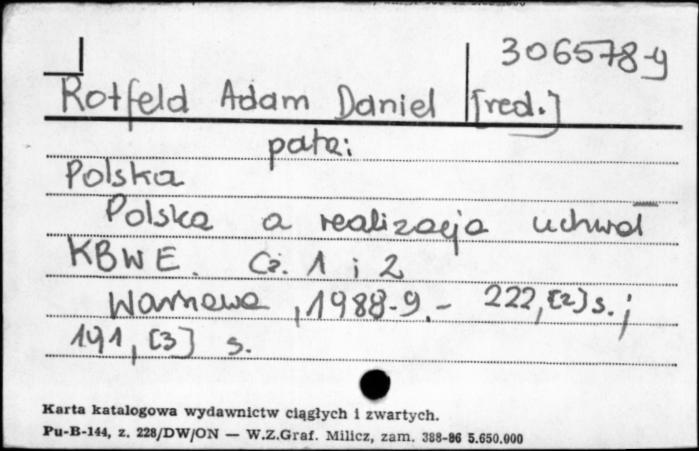 306578-9
Rotfeld Adam Daniel [red.]
patrz:
Polska
Polska a realizacja uchwał
KBWE. Cz. 1 i 2
Warszawa, 1988-9.- 222, [2] s. ;
191, [3] s.
Karta katalogowa wydawnictw ciągłych i zwartych.
Pu-B-144, z. 228/DW/ON — W.Z.Graf. Milicz, zam. 388-86 5.650.000